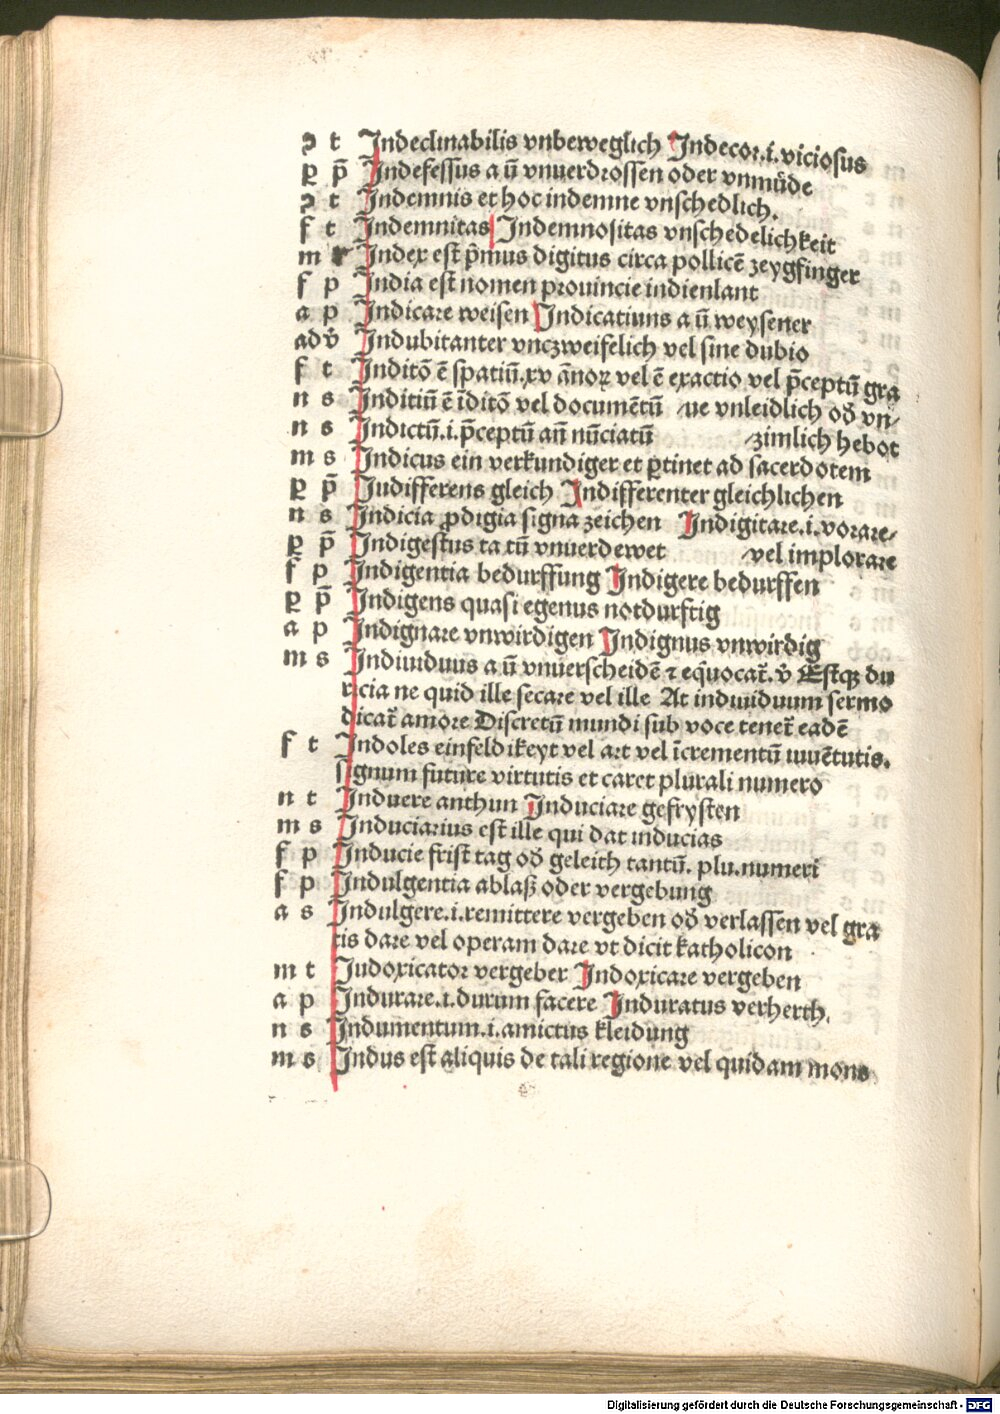 ꝯ t Indeclinabilis vnbeweglich Indecor.i. viciosus
ꝑ p̄ Indefessus a ū vnuerdrossen oder vnmüde
ꝯ t Indemnis et hoc indemne vnschedlich.
f t Indemnitas Indemnositas vnschedelichkeit
m r Index est p̄mus digitus circa pollicē zeygfinger
f p India est nomen prouincie indienlant
a p Indicare weisen Indicatiuus a ū weysener
adv̄ Indubitanter vnczweifelich vel sine dubio
f t Inditō ē spatiū.xv ānoꝝ vel ē exactio vel p̄ceptū gra
n s Inditiū ē īditō vel documētū /ue vnleidlich od̄ vn/
n s Indictū.i.p̄ceptū aū nūciatū /zimlich hebot
m s Indicus ein verkundiger et ꝑtinet ad sacerdotem
ꝑ p̄ Iudifferens gleich Indifferenter gleichlichen
n s Indicia ꝓdigia signa zeichen Indigitare.i.vorare/
ꝑ p̄ Indigestus ta tū vnuerdewet /vel implorare
f p Indigentia bedurffung Indigere bedurffen
ꝑ p̄ Indigens quasi egenus notdurftig
a p Indignare vnwirdigen Indignus vnwirdig
m s Indiuiduus a ū vnuerscheidē ⁊ eq̄uocat̄. v̄ Estqꝫ du
ricia ne quid ille secare vel ille At indiuiduum sermo
dicat̄ amore Discretū mundi sub voce tenet̄ eadē
f t Indoles einfeldikeyt vel art vel īcrementū iuuētutis.
signum future virtutis et caret plurali numero
n t Induere anthun Induciare gefrysten
m s Induciarius est ille qui dat inducias
f p Inducie frist tag od̄ geleith tantū. plu.numeri
f p Indulgentia ablaß oder vergebung
a s Indulgere.i.remittere vergeben od̄ verlassen vel gra
tis dare vel operam dare vt dicit katholicon
m t Iudoxicator vergeber Indoxicare vergeben
a p Indurare.i.durum facere Induratus verherth.
n s Indumentum.i.amictus kleidung
m s Indus est aliquis de tali regione vel quidam mons
Digitalisierung gefördert durch die Deutsche Forschungsgemeinschaft - DFG